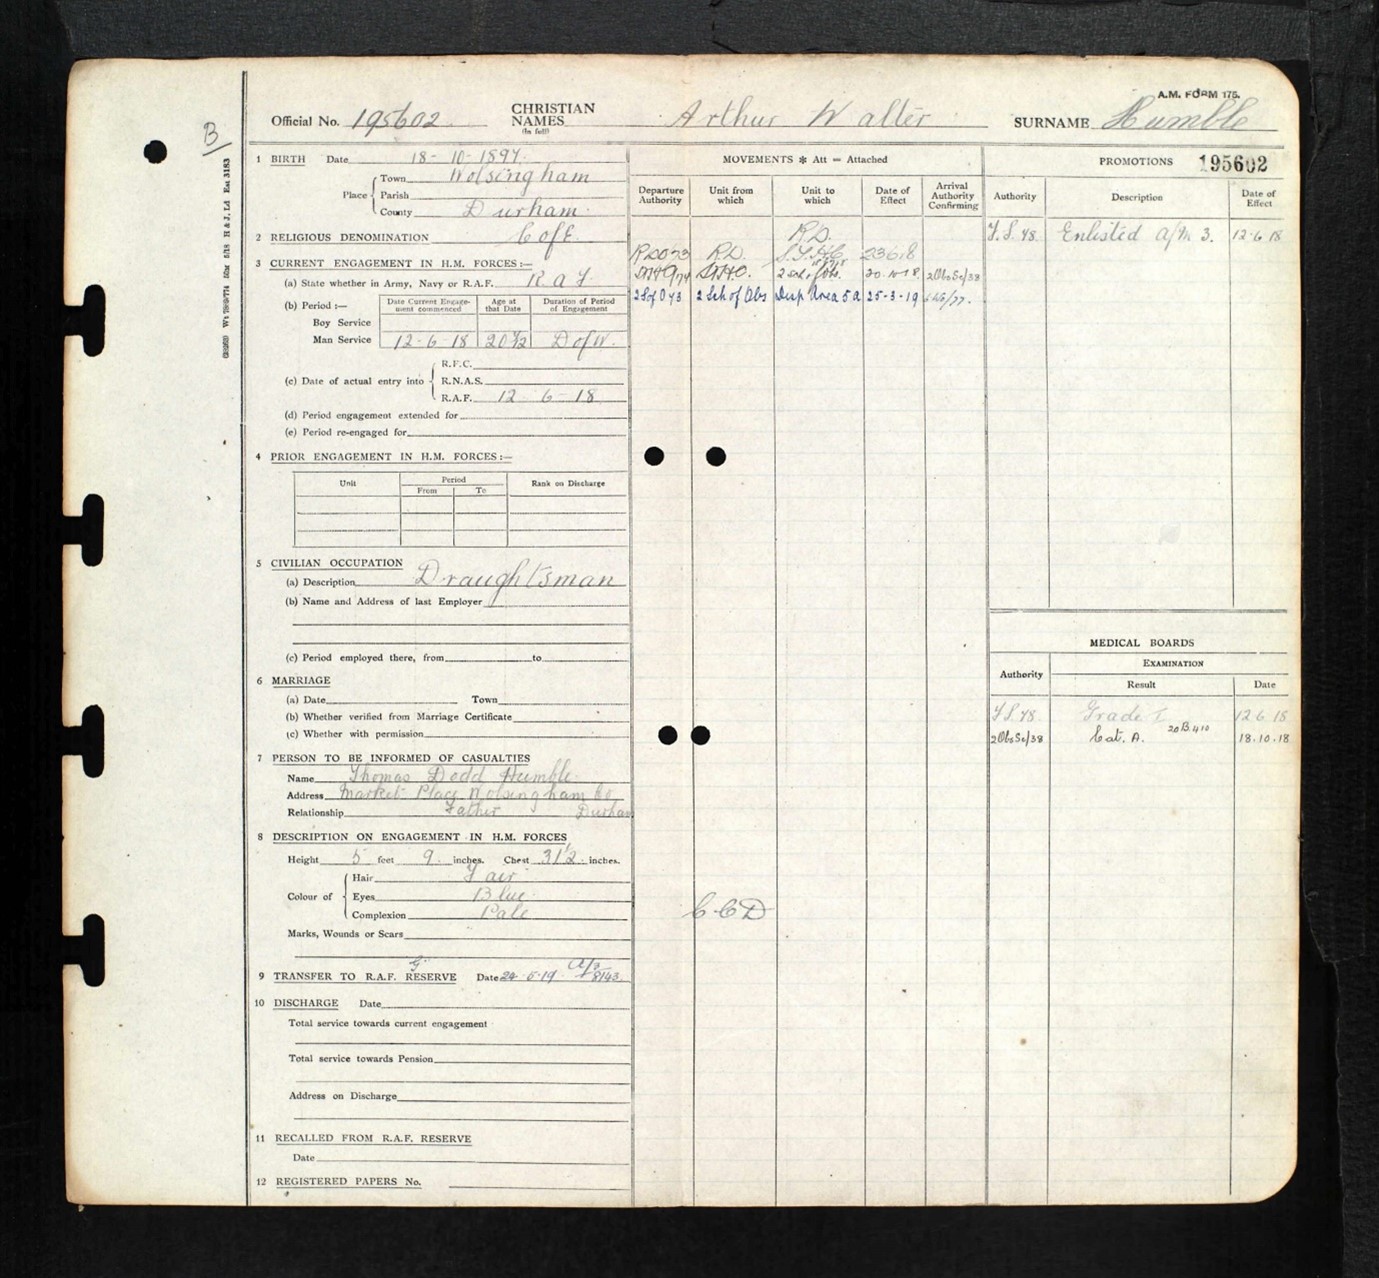 A.M. FORM 175.
B
Official No. 195602 CHRISTIAN NAMES (In full) Arthur Walter SURNAME Humble
1 BIRTH Date 18-10-1897
Place Town Wolsingham
Parish
County Durham
2 RELIGIOUS DENOMINATION C of E
3 CURRENT ENGAGEMENT IN H.M. FORCES:—
(a) State whether in Army, Navy or R.A.F. R A F
(b) Period:— Date Current Engagement commenced Age at that Date Duration of Period of Engagement
Boy Service
Man Service 12-6-18 D of W.
(c) Date of actual entry into R.F.C.
R.N.A.S.
R.A.F. 12 - 6 - 18
(d) Period engagement extended for
(e) Period re-engaged for
4 PRIOR ENGAGEMENT IN H.M. FORCES:—
Unit Period Rank on Discharge
From To
5 CIVILIAN OCCUPATION
(a) Description Draughtsman
(b) Name and Address of last Employer
(c) Period employed there, from to
6 MARRIAGE
(a) Date Town
(b) Whether verified from Marriage Certificate
(c) Whether with permission
7 PERSON TO BE INFORMED OF CASUALTIES
Name Thomas Dodd Humble
Address Market Place Wolsingham Co
Relationship Father Durham
8 DESCRIPTION ON ENGAGEMENT IN H.M. FORCES
Height 5 feet 9 inches. Chest 31½ inches.
Colour of Hair Fair
Eyes Blue
Complexion Pale
Marks, Wounds or Scars
9 TRANSFER TO R.A.F. RESERVE G Date
10 DISCHARGE Date
Total service towards current engagement
Total service towards Pension
Address on Discharge
11 RECALLED FROM R.A.F. RESERVE
Date
12 REGISTERED PAPERS No.
MOVEMENTS * Att = Attached
Departure Authority Unit from which Unit to which Date of Effect Arrival Authority Confirming
R.D.
R.D. 23618
20.10.18 2ObsSc/38
2 Sch of Obs Disp Area 5a 25-3-19
C.C.D
PROMOTIONS 195602
Authority Description Date of Effect
Enlisted a/m 3. 12-6-18
MEDICAL BOARDS
Authority EXAMINATION
Result Date
Grade I 12 6 18
2ObsSc/38 Cat. A. 20B410 18.10.18